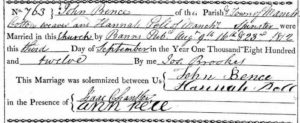 No 763 } John Bence of this Parish Town of Manch
Cotton weaver and Hannah Bell of Manchr Spinster were
Married in this Church by Banns Pubd Augt 9th 16th & 23rd 1812
this third Day of September in the Year One Thousand Eight Hundred
and twelve By me Jos. Brookes
This Marriage was solemnized between Us { John Bence
Hannah Bell
In the Presence of { Isaac Chantler